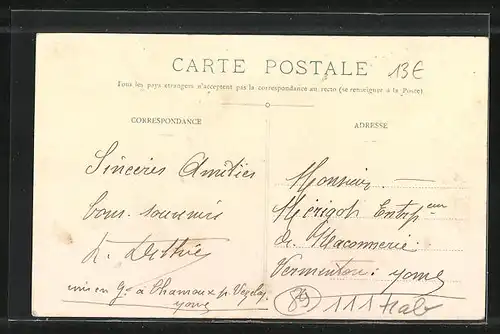 CARTE POSTALE 13€
Tous les pays étrangers n'acceptent pas la correspondance au recto (se renseigner à la Poste)
CORRESPONDANCE
Sincères Amitiés
bons souvenir
mis en Ge à Chamoux p. Vezelay
Yonne
ADRESSE
Monsieur
Mérigot Entrepeneur
de Maçonnerie
Vermenton Yonne
89